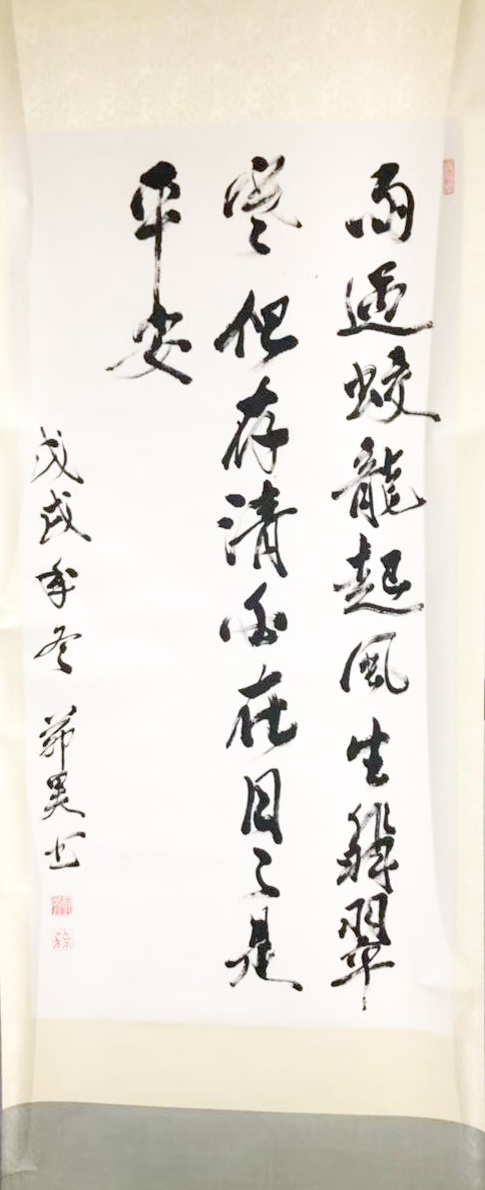 雨過蛟龍起風生翡翠
寒但存清白在日々是
平安
戊戌年冬 書